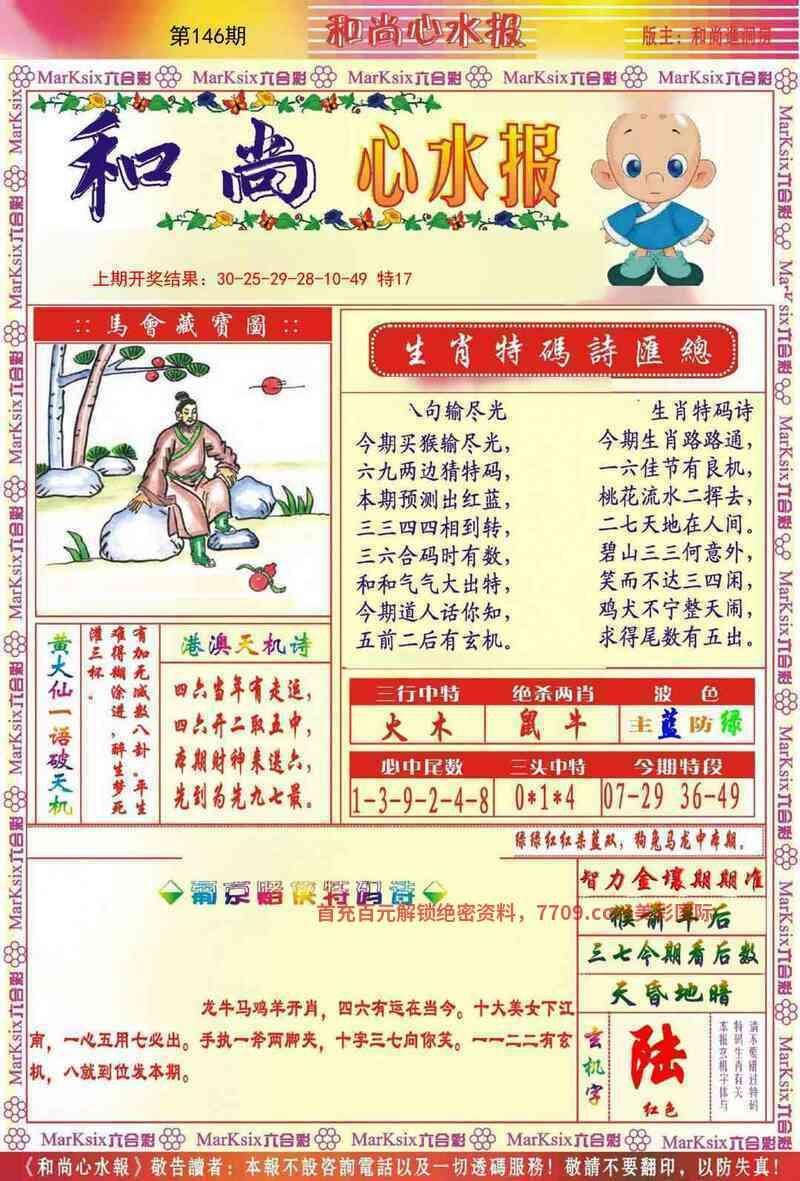 第146期
和尚心水报
MarKsix六合彩 MarKsix六合彩 MarKsix六合彩 MarKsix六合彩 MarKsix六合彩
和尚 心水报
上期开奖结果：30-25-29-28-10-49 特17
::馬會藏寶圖::
生肖特碼詩匯總
八句输尽光
今期买猴输尽光，
六九两边猜特码，
本期预测出红蓝，
三三四四相到转，
三六合码时有数，
和和气气大出特，
今期道人话你知，
五前二后有玄机。
生肖特码诗
今期生肖路路通，
一六佳节有良机，
桃花流水二挥去，
二七天地在人间。
碧山三三何意外，
笑而不达三四闲，
鸡犬不宁整天闹，
求得尾数有五出。
黄大仙一语破天机
有加无减数八卦。平生
难得糊涂进，醉生梦死
灌三杯。
港澳天机诗
四六当年有走运，
四六开二取五中，
本期财神来送六，
先到为先九七最。
三行中特 绝杀两肖 波色
火木 鼠牛 主蓝防绿
必中尾数 三头中特 今期特段
1-3-9-2-4-8 0*1*4 07-29 36-49
绿绿红红杀蓝双，狗兔马龙中本期。
葡京赌侠特码诗
首充百元解锁绝密资料，7709.com美彩国际
龙牛马鸡羊开肖，四六有运在当今。十大美女下江
南，一心五用七必出。手执一斧两脚夹，十字三七向你笑。一一二二有玄
机，八就到位发本期。
智力金壤期期准
猴前羊后
三七今期看后数
天昏地暗
玄机字
陆
红色
请不要错过特码
特码生肖有关
本报玄机字体与
MarKsix六合彩 MarKsix六合彩 MarKsix六合彩 MarKsix六合彩 MarKsix六合彩
《和尚心水報》敬告讀者：本報不設咨詢電話以及一切透碼服務！敬請不要翻印，以防失真！